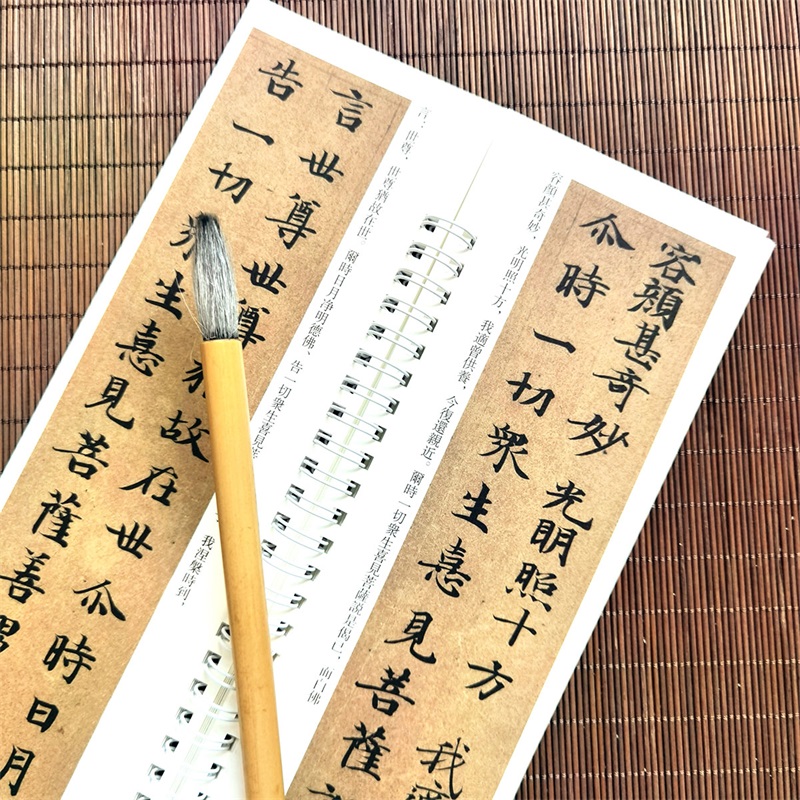 容顏甚奇妙 光明照十方 我
尒時一切衆生憙見菩薩
容顏甚奇妙，光明照十方，我適曾供養，今復還親近。爾時一切衆生喜見菩薩說是偈已，而白佛
言：世尊，世尊猶故在世。爾時日月淨明德佛，告一切衆生喜見菩
我涅槃時到，
言世尊世尊故在世尒時日月
告一切衆生憙見菩薩善